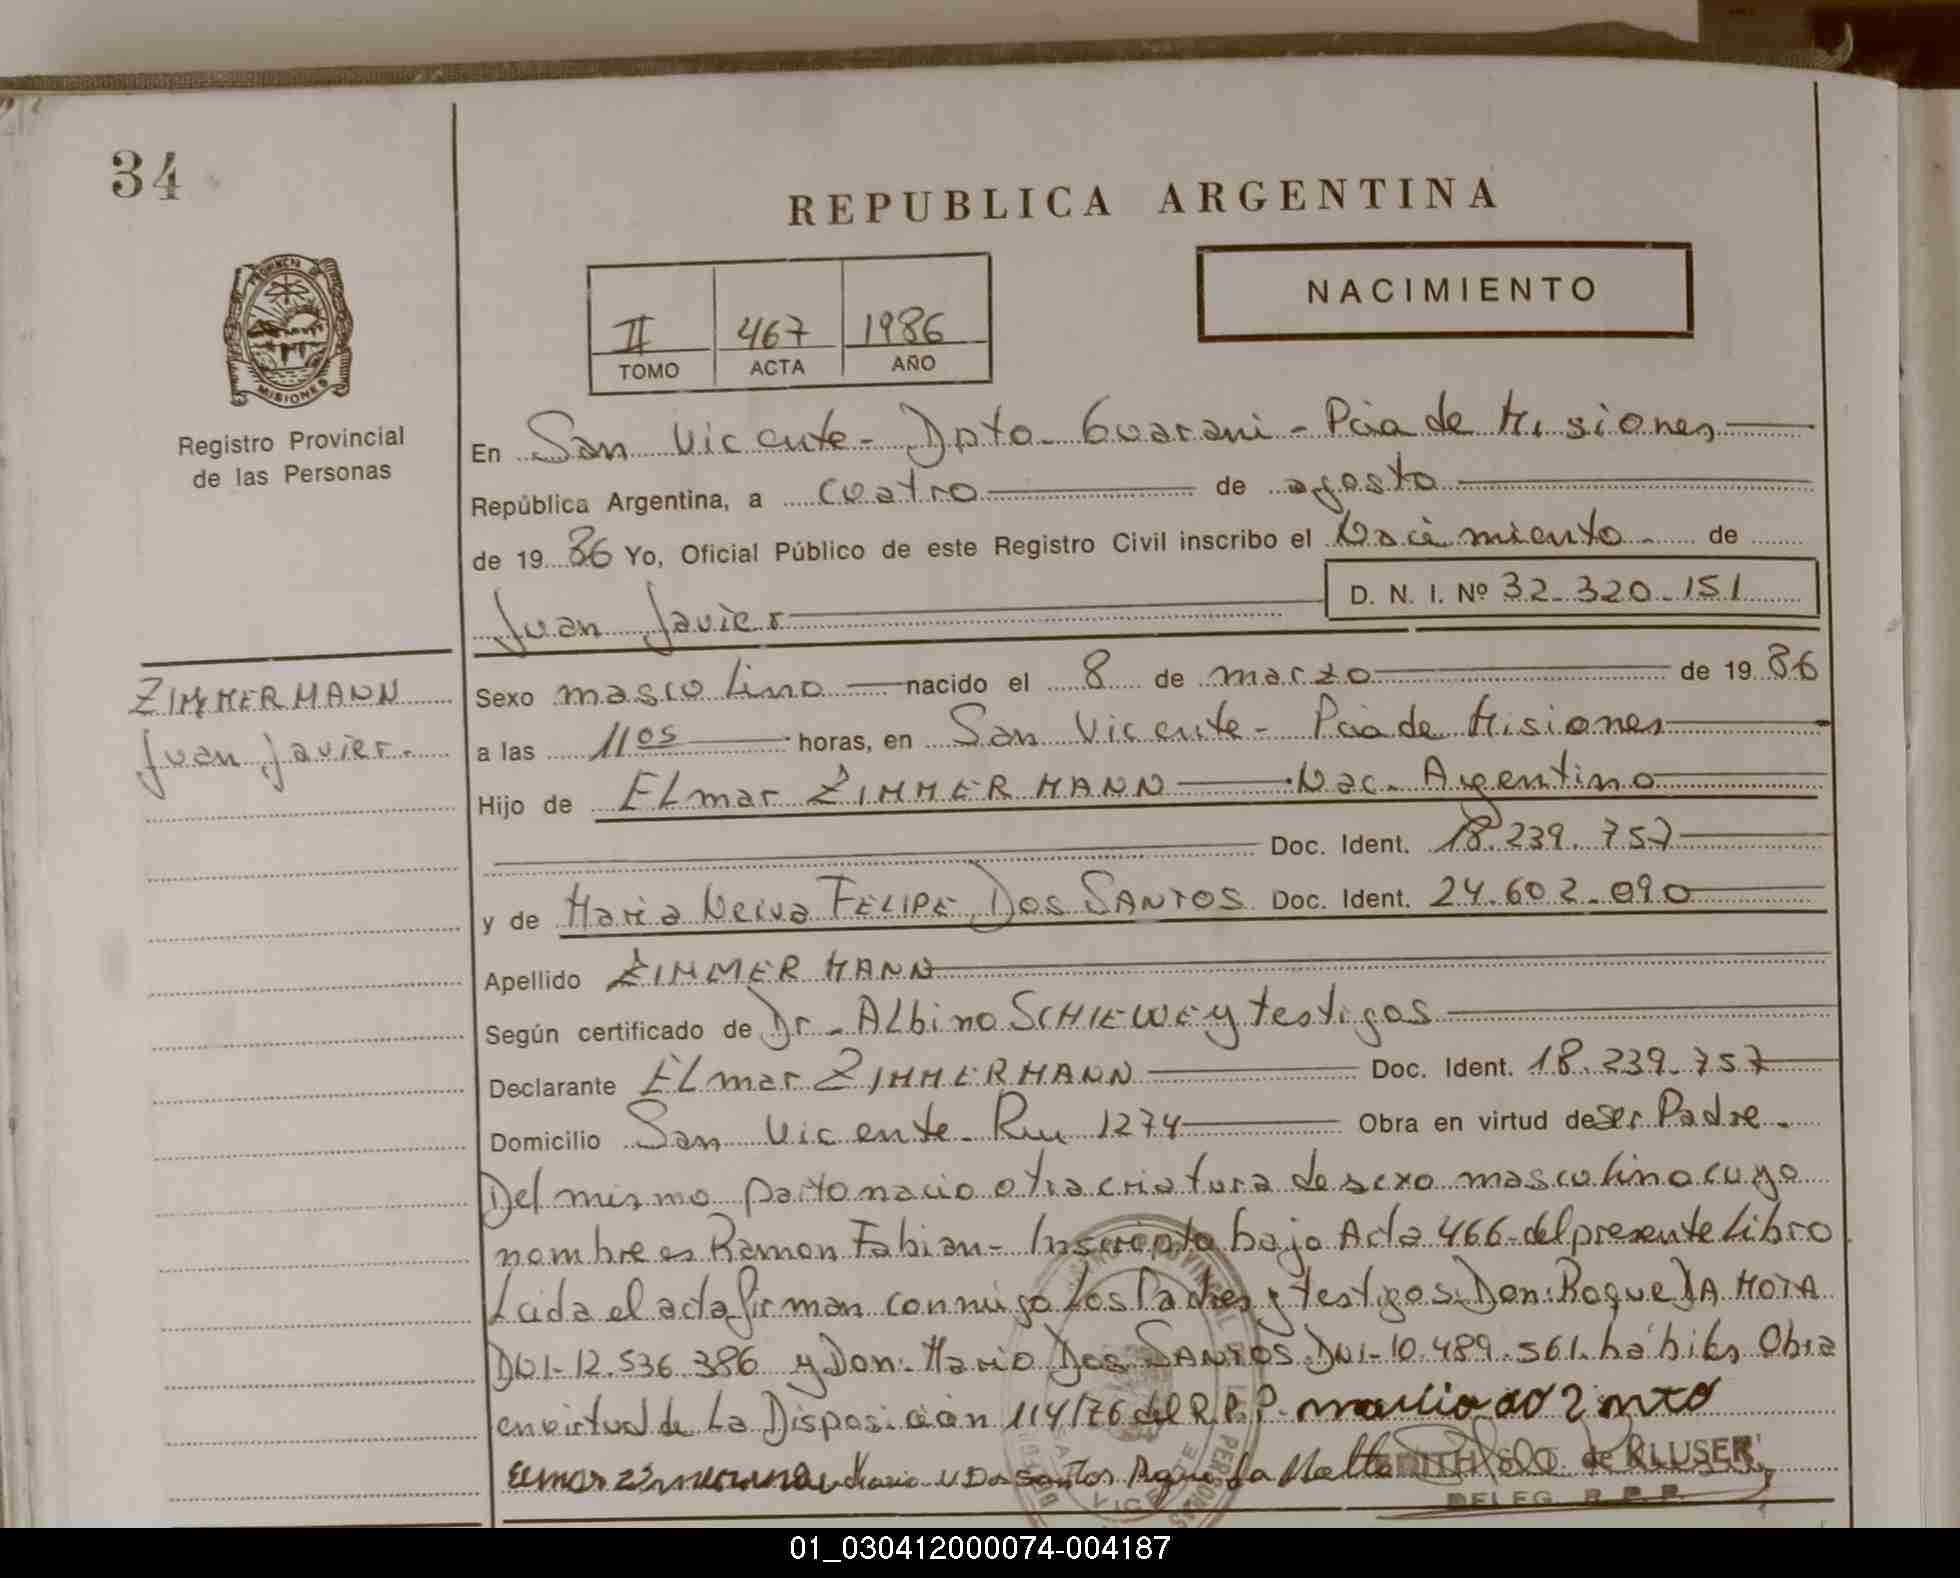 34
REPUBLICA ARGENTINA
NACIMIENTO
II 467 1986
TOMO ACTA AÑO
PROVINCIA DE MISIONES
Registro Provincial
de las Personas
En San Vicente - Dpto - Guarani - Pcia de Misiones
República Argentina, a cuatro de agosto
de 19 86 Yo, Oficial Público de este Registro Civil inscribo el Nacimiento de
D. N. I. Nº 32.320.151
Juan Javier
ZIMMERMANN
Juan Javier.
Sexo masculino nacido el 8 de marzo de 19 86
a las 11 05 horas, en San Vicente - Pcia de Misiones
Hijo de Elmar ZIMMERMANN Nac. Argentino
Doc. Ident. 18.239.757
y de Maria Neiva FELIPE DOS SANTOS Doc. Ident. 24.602.090
Apellido ZIMMERMANN
Según certificado de Dr. Albino SCHIEWE y testigos
Declarante Elmar ZIMMERMANN Doc. Ident. 18.239.757
Domicilio San Vicente - Ruu 1274 Obra en virtud de ser Padre.
Del mismo parto nacio otra criatura de sexo masculino cuyo
nombre es Ramon Fabian - Inscripto bajo Acta 466 - del presente Libro
Leida el acta firman conmigo Los Padres y testigos: Don: Roque DA MOTA
DNI - 12.536.386 y Don: Mario DOS SANTOS DNI - 10.489.561. hábiles Obra
en virtud de La Disposicion 114/76 del R.P.P.
Maria N Dos Santos
de KLUSER
DELEG. R.P.P.
01_030412000074-004187